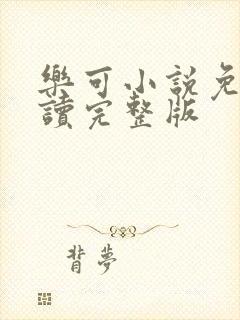 樂可小說免
讀完整版
背夢